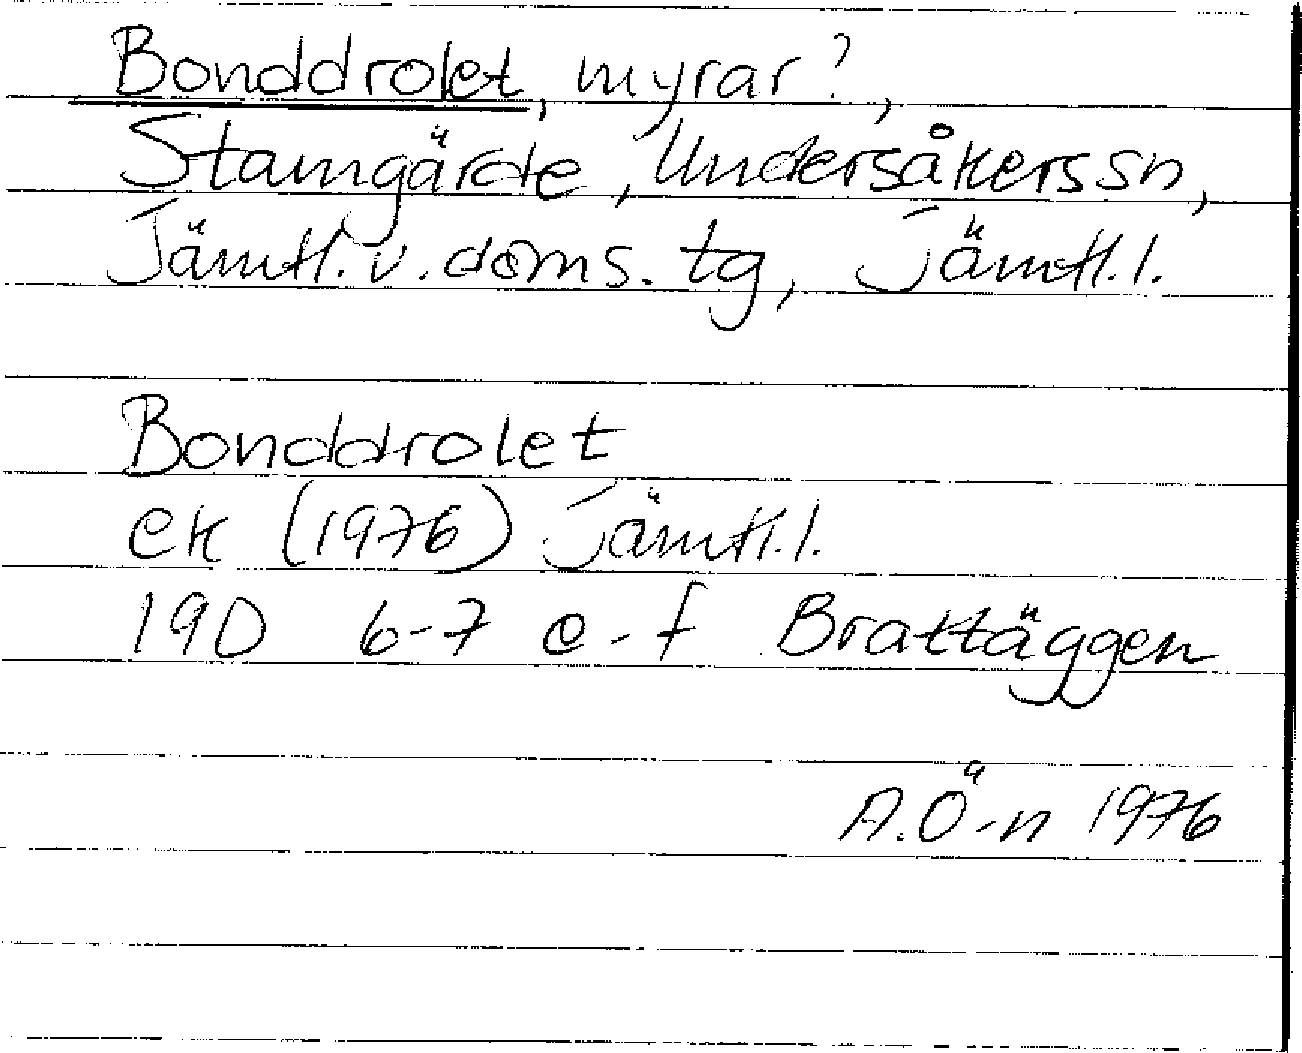 Bonddrolet, myrar?,
Stamgärde, Undersåkers sn,
Jämtl. v. doms. tg, Jämtl. l.
Bonddrolet
ek (1976) Jämtl. l.
19D 6-7 e-f Brattäggen
A.Ö-n 1976